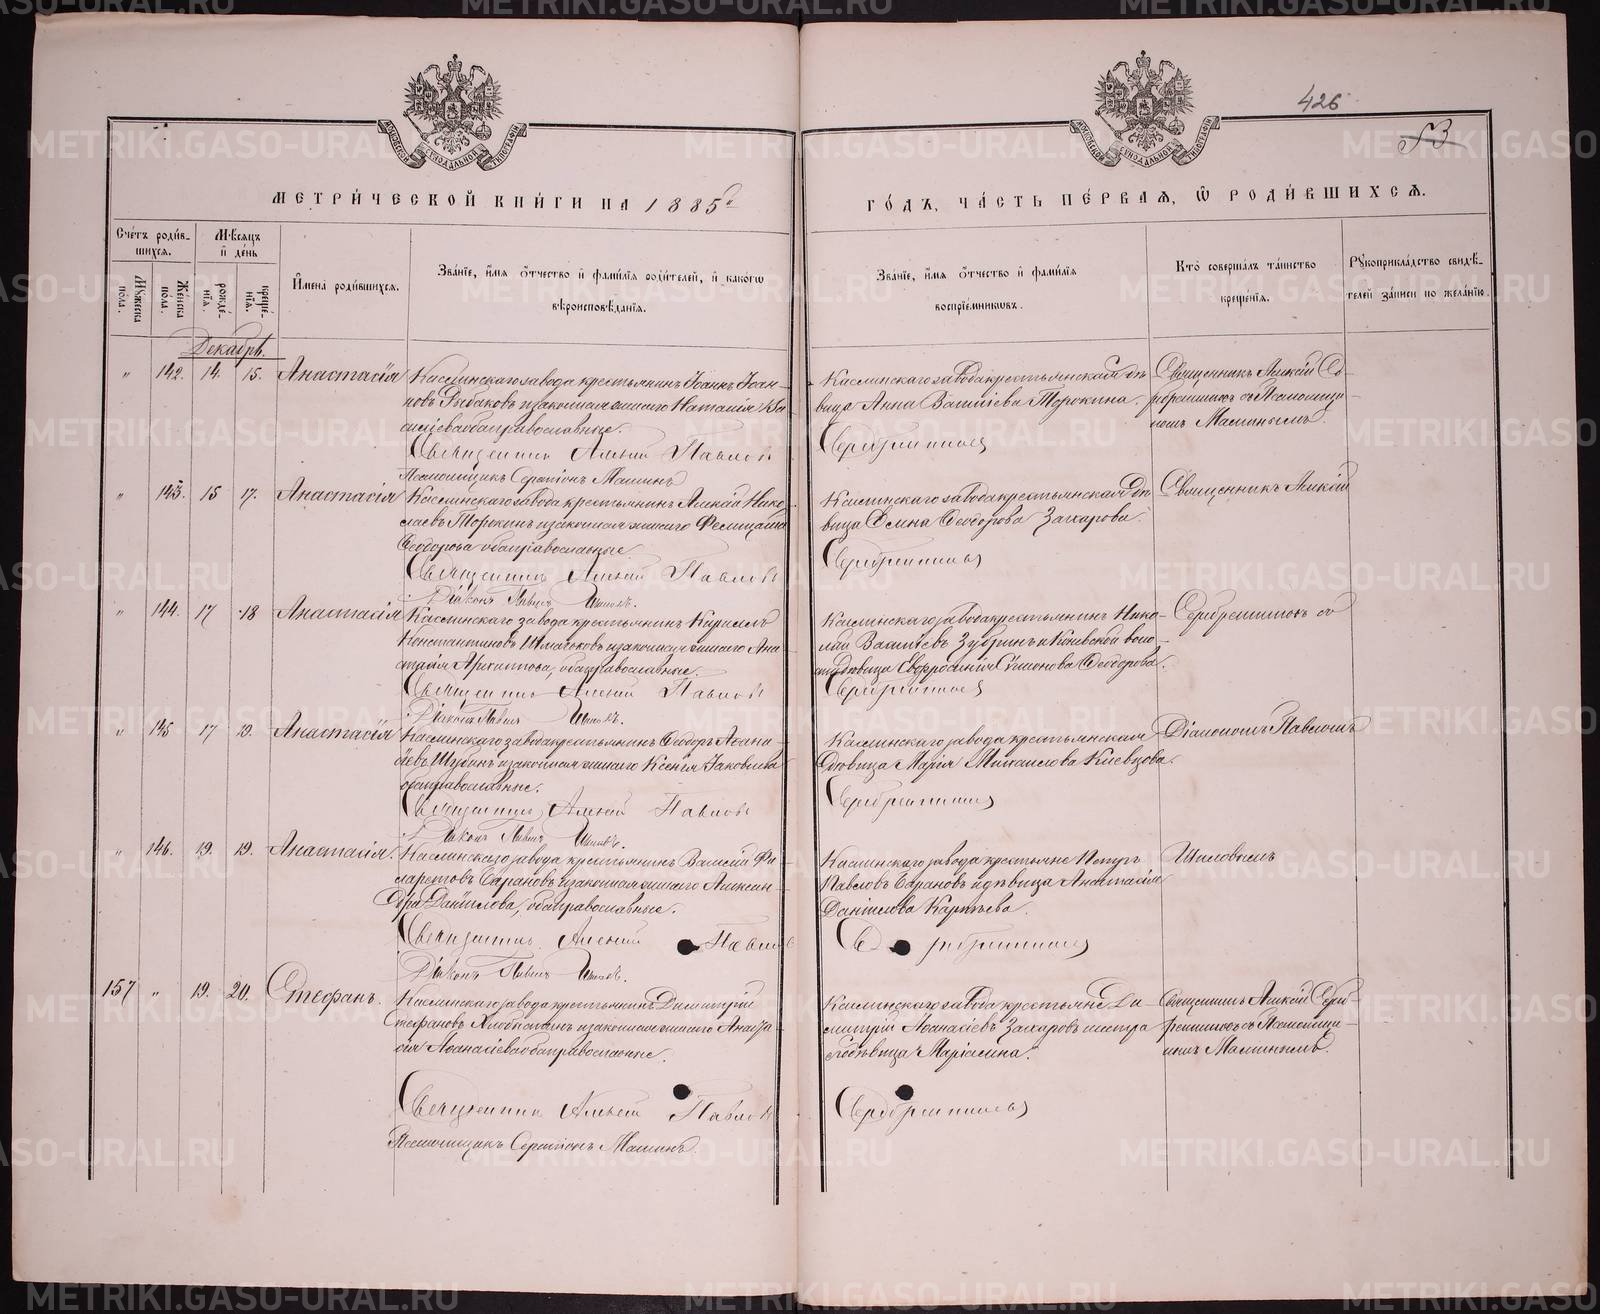 426
53
МЕТРИЧЕСКОЙ КНИГИ НА 1885й
ГОДЪ, ЧАСТЬ ПЕРВАЯ, Ѡ РОДИВШИХСЯ.
Счетъ родив-
шихся.
Мужеска пола.
Женска пола.
Мѣсяцъ
и день
рожде-
нія.
креще-
нія.
Имена родившихся.
Званіе, имя отчество и фамилія родителей, и какогѡ
вѣроисповѣданія.
Званіе, имя отчество и фамилія
воспріемниковъ.
Кто совершалъ таинство
крещенія.
Рукоприкладство свидѣ-
телей записи по желанію.
Декабрь.
" 142. 14. 15. Анастасія
Каслинскаго завода крестьянинъ Іоаннъ Іоан-
новъ Рыбаковъ и законная жена его Наталія Ва-
силіева оба православные.
Священникъ Алексій Павловъ
Псаломщикъ Серапіонъ Мамин
Каслинскаго завода крестьянская дѣ-
вица Анна Василіева Торокина.
Серебренниковъ
Священникъ Алексій Се-
ребренниковъ съ Псаломщи-
комъ Маминымъ.
" 143. 15 17. Анастасія
Каслинскаго завода крестьянинъ Алексій Нико-
лаевъ Торокинъ и законная жена его Фелицата
Ѳеодорова оба православные
Священникъ Алексій Павловъ
Діаконъ Павелъ Шиловъ.
Каслинскаго завода крестьянская дѣ-
вица Ѳеодорова Захарова.
Серебренниковъ
Священникъ Алексій
" 144. 17 18 Анастасія
Каслинскаго завода крестьянинъ Кириллъ
Константиновъ и законная жена его Ана-
стасія Архипова, оба православные.
Священникъ Алексій Павловъ
Діаконъ Павелъ Шиловъ.
Каслинскаго завода крестьянинъ Нико-
лай Василіевъ Зубринъ и воло-
сти дѣвица Евфросинія Симонова Ѳеодорова.
Серебренниковъ
Серебренниковъ съ
" 145 17 19. Анастасія
Каслинскаго завода крестьянинъ Ѳеодоръ Аѳана-
сіевъ Шубинъ и законная жена его Ксенія Іаковлева
оба православные.
Священникъ Алексій Павловъ
Діаконъ Павелъ Шиловъ.
Каслинскаго завода крестьянская
дѣвица Марія Михаилова Киевцова.
Серебренниковъ
Діакономъ Павломъ
" 146. 19. 19. Анастасія.
Каслинскаго завода крестьянинъ Василій Фи-
ларетовъ Барановъ и законная жена его Алексан-
дра Даніилова, оба православные.
Священникъ Алексій Павловъ
Діаконъ Павелъ Шиловъ.
Каслинскаго завода крестьяне Петръ
Павловъ Барановъ и дѣвица Анастасія
Даніилова Карпѣева.
Серебренниковъ
Шиловымъ
157 " 19. 20. Стефанъ.
Каслинскаго завода крестьянинъ Димитрій
Стефановъ Хлобыстинъ и законная жена его Анаста-
сія Аѳанасіева оба православные.
Священникъ Алексій Павловъ
Псаломщикъ Серапіонъ Маминъ.
Каслинскаго завода крестьяне Ди-
митрій Аѳанасіевъ Захаровъ и сестра
его дѣвица Маріамна.
Серебренниковъ
Священникъ Алексій Сереб-
ренниковъ съ Псаломщи-
комъ Маминымъ.
METRIKI.GASO-URAL.RU